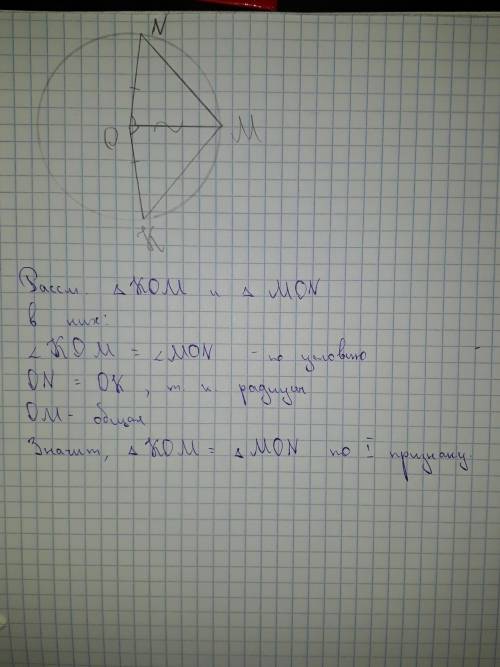 N
O
M
K
Рассм. △ KOM и △ MON
в них:
∠ KOM = ∠ MON - по условию
ON = OK, т. к радиусы
OM - общая
Значит, △ KOM = △ MON по I признаку.